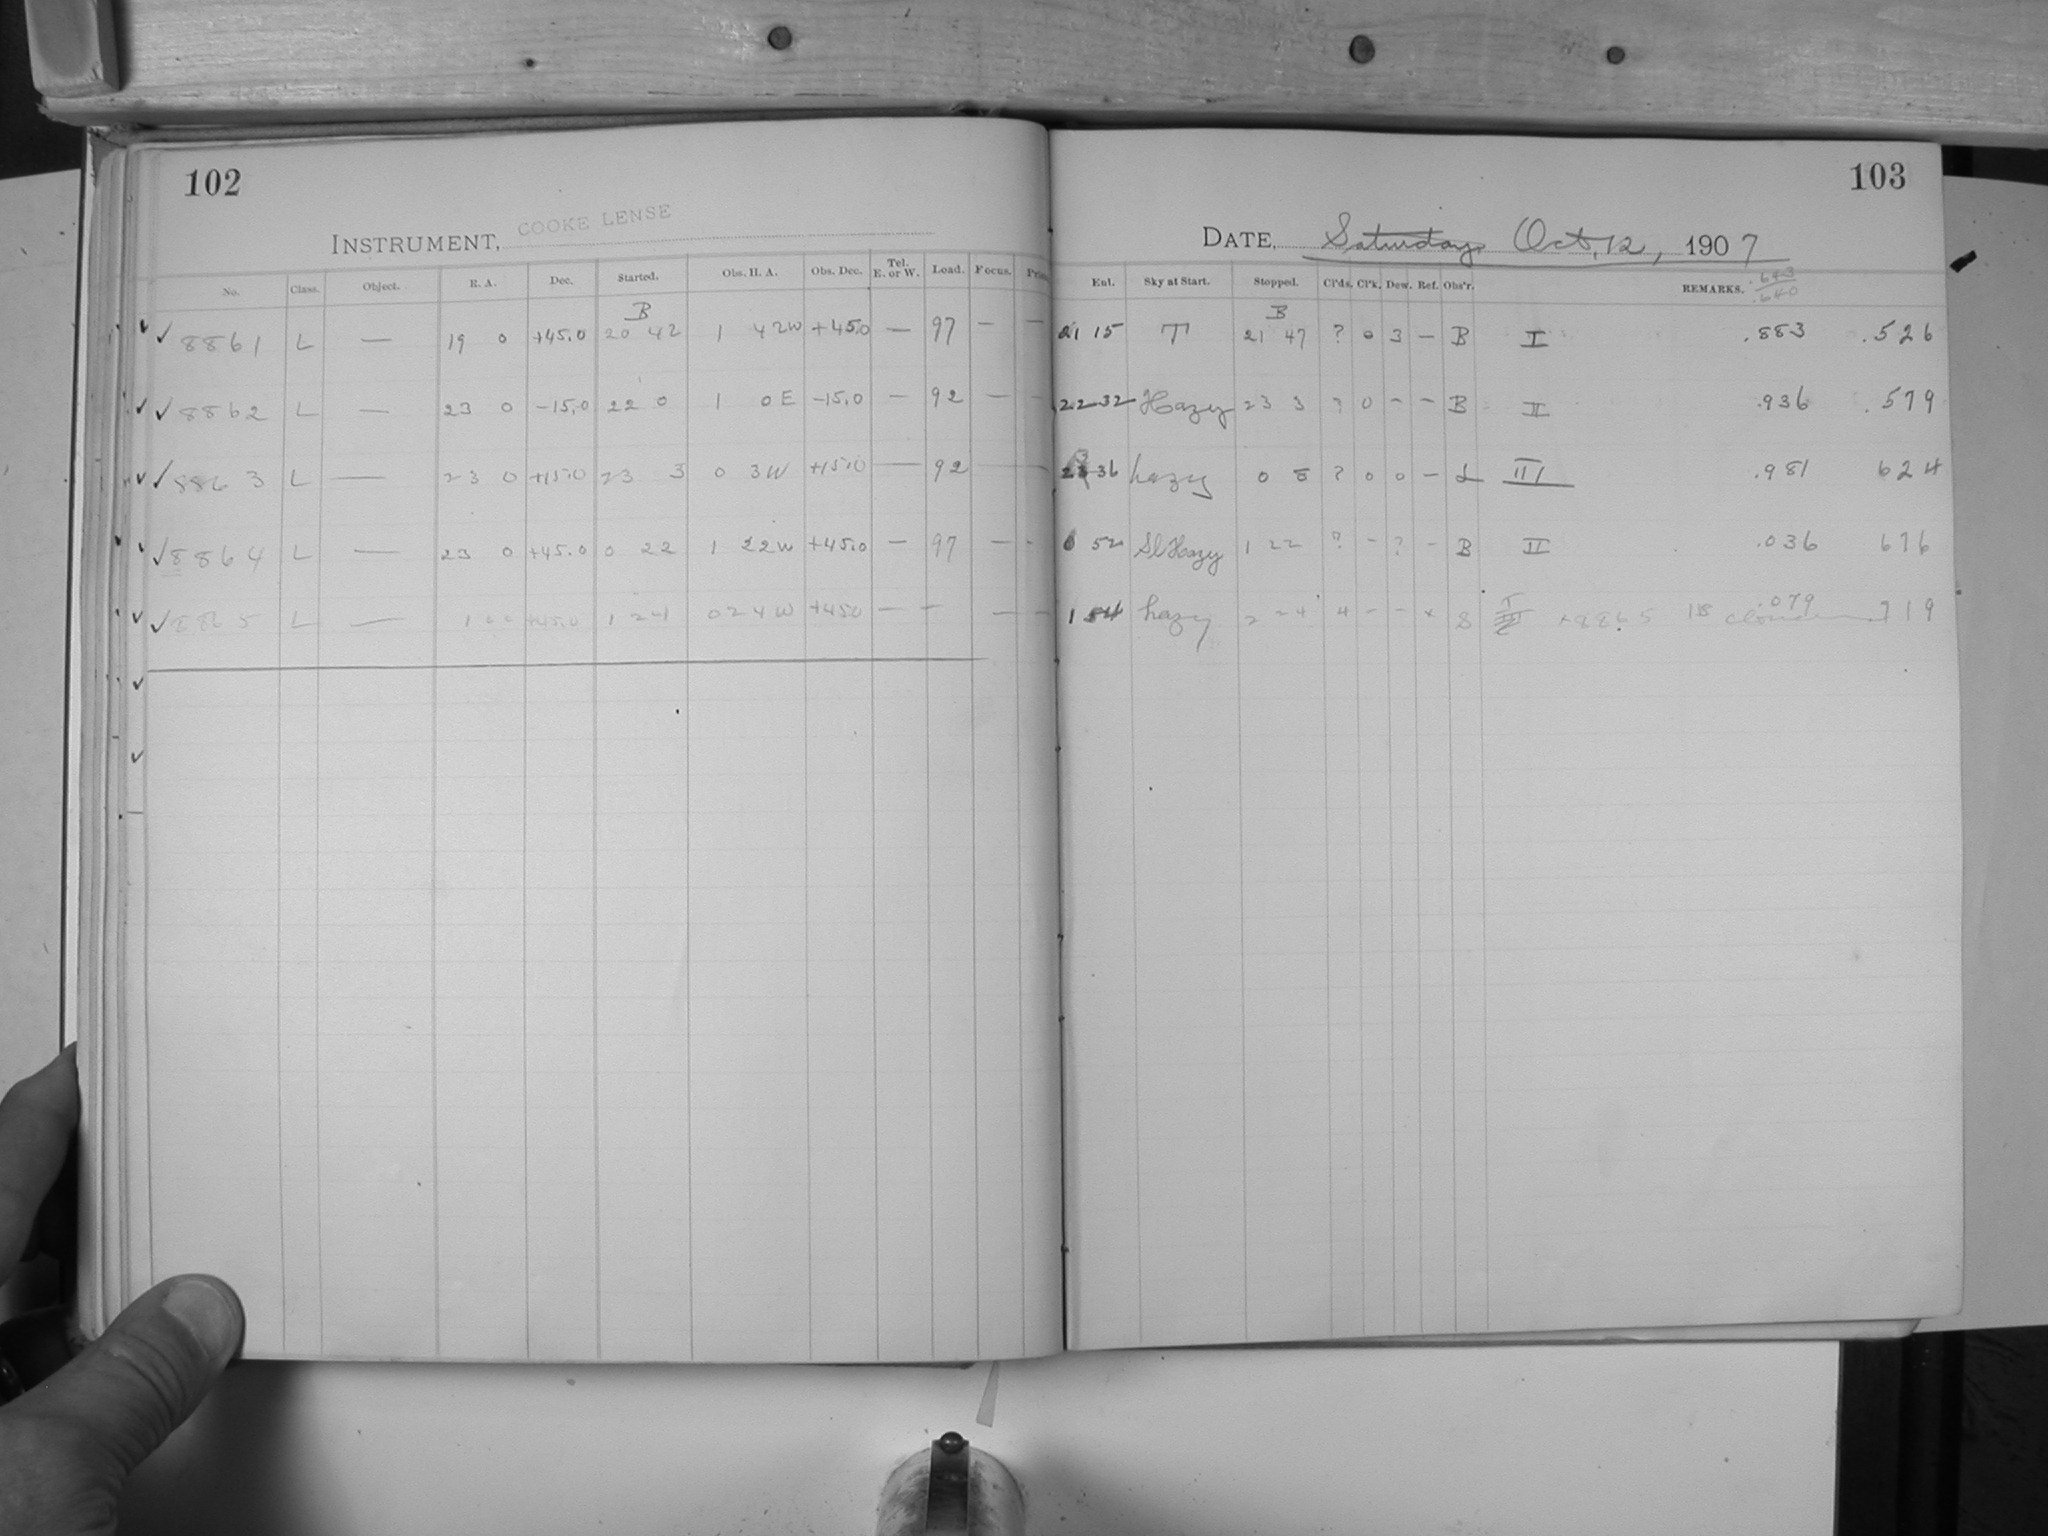 102
INSTRUMENT, COOKE LENSE
No. Class. Object. R. A. Dec. Started. Obs. H. A. Obs. Dec. Tel. E. or W. Load. Focus.
B
8861 L — 19 0 +45.0 20 42 1 42W +45.0 — 97 — —
8862 L — 23 0 -15.0 22 0 1 0E -15.0 — 92 — —
8863 L — 23 0 +15.0 23 3 0 3W +15.0 — 92 — —
8864 L — 23 0 +45.0 0 22 1 22W +45.0 — 97 — -
8865 L — 1 00 +45.0 1 24 0 24W +45.0 — — — —
103
DATE, Saturday Oct. 12, 1907
Ent. Sky at Start. Stopped. Cl'ds. Cl'k. Dew. Ref. Obs'r. REMARKS. .643
.640
B
21 15 T 21 47 ? 0 3 — B I .883 .526
22 32 Hazy 23 3 ? 0 - - B II .936 .579
23 36 hazy 0 8 ? 0 0 — L III .981 624
0 52 Sl Hazy 1 22 ? - ? - B II .036 676
1 54 hazy 2 24 4 - - S I 8865 is .079 719